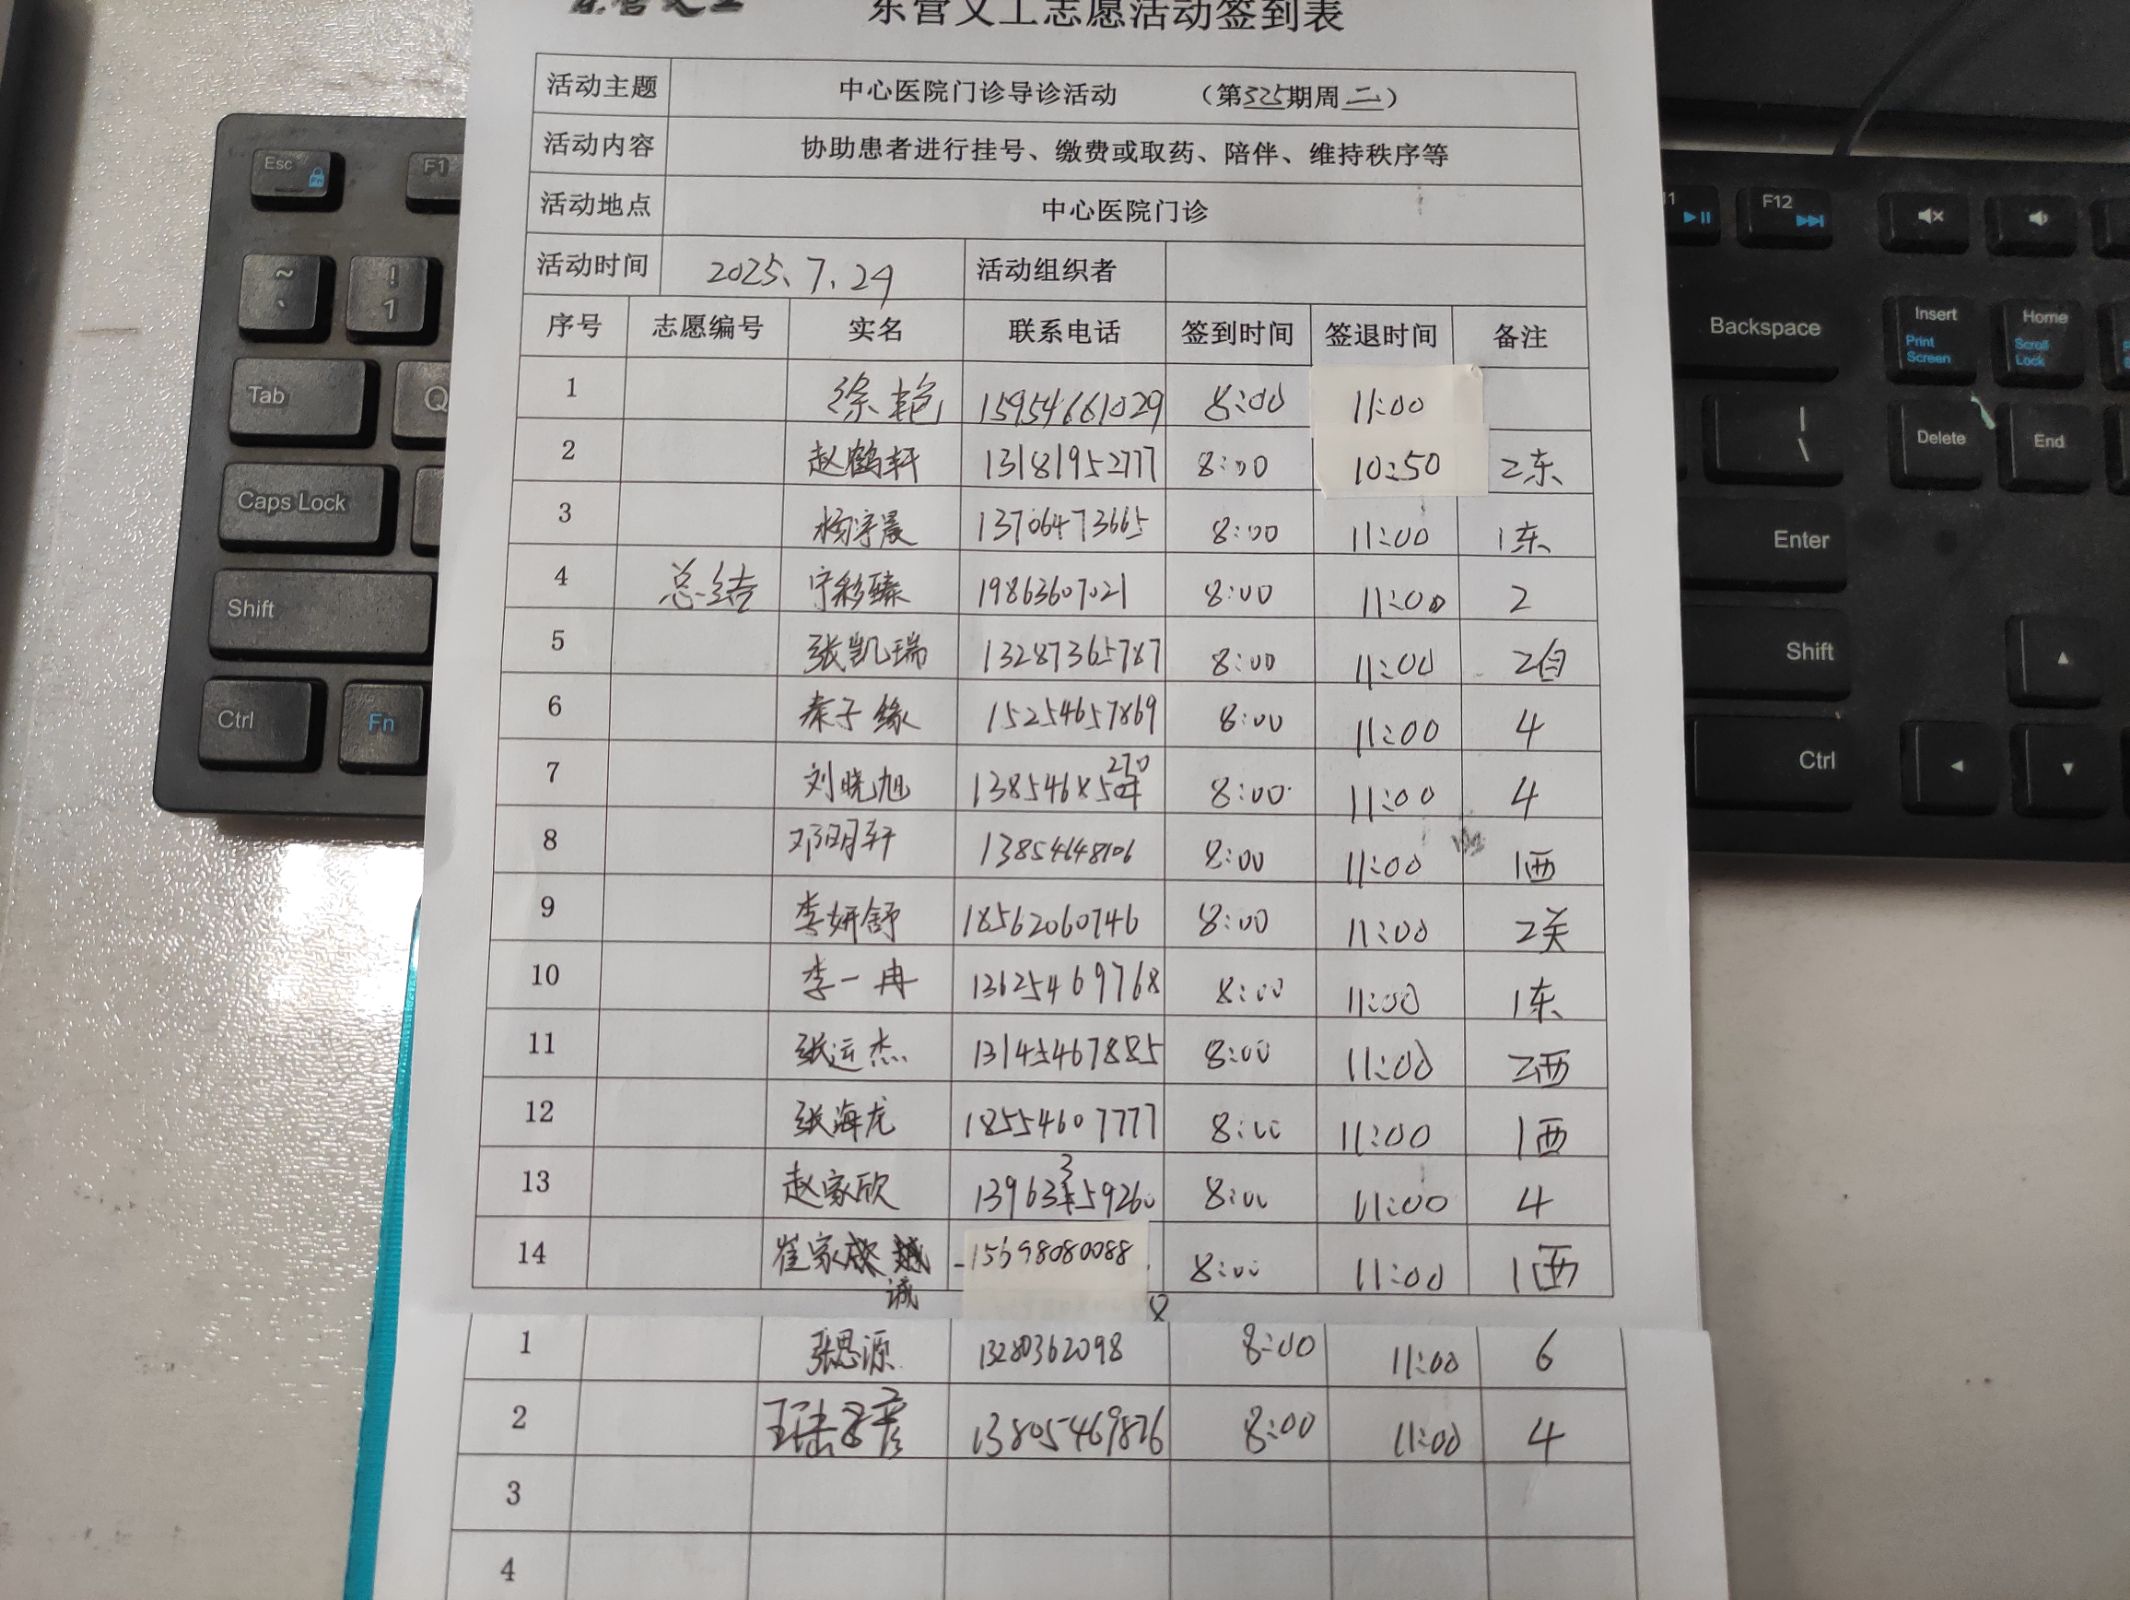 东营义工志愿活动签到表
活动主题 中心医院门诊导诊活动 （第525期周二）
活动内容 协助患者进行挂号、缴费或取药、陪伴、维持秩序等
活动地点 中心医院门诊
活动时间 2025、7、29 活动组织者
序号 志愿编号 实名 联系电话 签到时间 签退时间 备注
1 徐艳 15954661029 8:00 11:00
2 赵鹤轩 13181952777 8:00 10:50 2东
3 杨淳晨 13706473665 8:00 11:00 1东
4 总结 宁彩臻 19863607021 8:00 11:00 2
5 张凯瑞 13287365787 8:00 11:00 2自
6 秦子缘 15254657869 8:00 11:00 4
7 刘晓旭 13854685270 8:00 11:00 4
8 邓明轩 13854648106 8:00 11:00 1西
9 李妍舒 18562060746 8:00 11:00 2关
10 李一冉 13625469768 8:00 11:00 1东
11 张运杰 13145467885 8:00 11:00 2西
12 张海龙 18554607777 8:00 11:00 1西
13 赵家欣 13963359260 8:00 11:00 4
14 崔家诚 15698080088 8:00 11:00 1西
1 张思源 13280362098 8:00 11:00 6
2 13805469876 8:00 11:00 4
3
4
Esc Fn F1
~ ` ! 1
Tab Q
Caps Lock
Shift
Ctrl Fn
F12
Backspace Insert Print Screen Home Scroll Lock
| \ Delete End
Enter
Shift
Ctrl